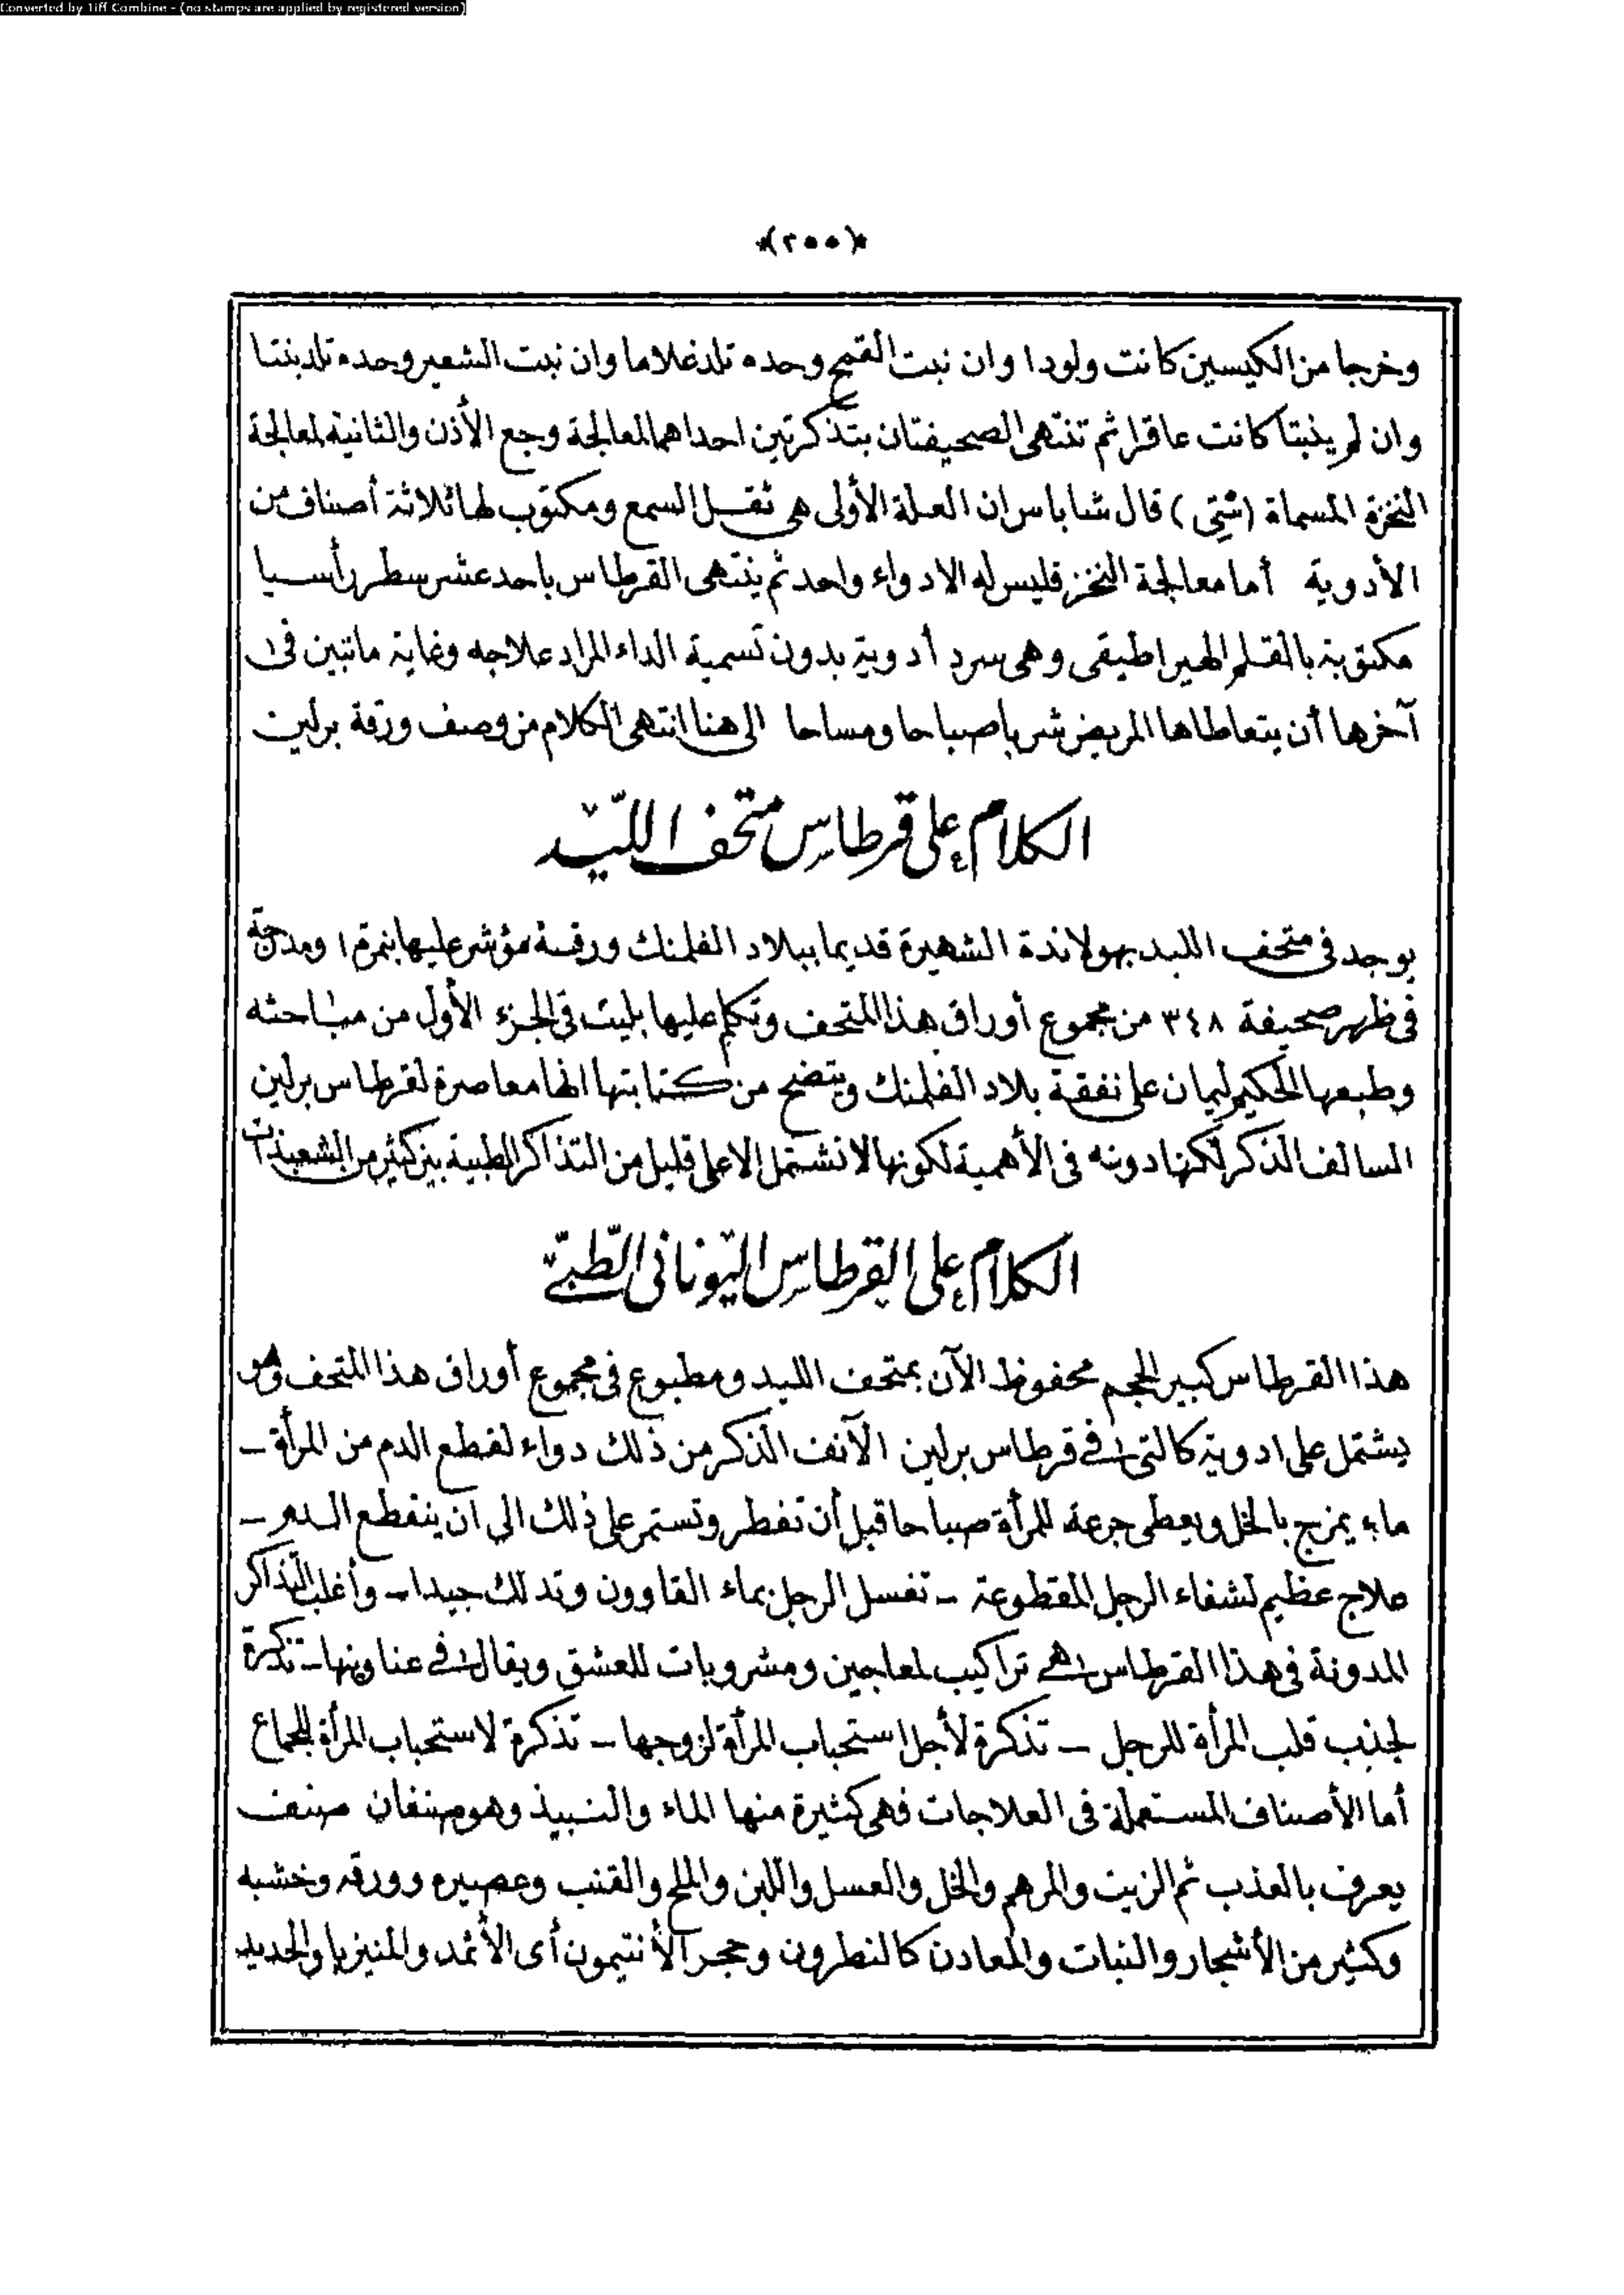 Converted by Tiff Combine - (no stamps are applied by registered version)
*(٢٠٠)*
وخرجا من الكيسين كانت ولودا وان نبت القمح وحده تلد غلاما وان نبت الشعير وحده تلد بنتا
وان لم ينبتا كانت عاقرا ثم تنتهى الصحيفتان بتذكرتين احداهما لمعالجة وجع الأذن والثانية لمعالجة
النخزة المسماة (شتى) قال شاباس ان العلة الأولى هى ثقل السمع ومكتوب لها ثلاثة أصناف من
الأدوية أما معالجة النخز فليس له الا دواء واحد ثم ينتهى القرطاس باحد عشر سطر رأسيا
مكتوبة بالقلم الهيراطيقى وهى سرد أدوية بدون تسمية الداء المراد علاجه وغاية ماتبين فى
آخرها أن يتعاطاها المريض شربا صباحا ومساحا الى هنا انتهى الكلام من وصف ورقة برلين
الكلام على قرطاس متحف الليد
يوجد فى متحف الليد بهولاندة الشهيرة قديما ببلاد الفلمنك ورقة مؤشر عليها بنمرة ١ ومدرجة
فى ظهر صحيفة ٣٤٨ من مجموع أوراق هذا المتحف وتكلم عليها بليت فى الجزء الأول من مباحثه
وطبعها الحكيم ليمان على نفقة بلاد الفلمنك ويتضح من كتابتها انها معاصرة لقرطاس برلين
السالف الذكر لكنها دونه فى الأهمية لكونها لا تشتمل الا على قليل من التذاكر الطبية بين كثير من الشعبذات
الكلام على القرطاس اليونانى الطبى
هذا القرطاس كبير الحجم محفوظ الآن بمتحف الليد ومطبوع فى مجموع أوراق هذا المتحف وهو
يشتمل على ادوية كالتى فى قرطاس برلين الآنف الذكر من ذلك دواء لقطع الدم من المرأة ـ
ماء يمزج بالخل ويعطى جرعة للمرأة صباحا قبل أن تفطر وتستمر على ذلك الى ان ينقطع الدم ـ
علاج عظيم لشفاء الرجل المقطوعة ـ تغسل الرجل بماء القاوون وتدلك جيدا ـ وأغلب التذاكر
المدونة فى هذا القرطاس هى تراكيب لمعاجين ومشروبات للعشق ويقال فى عناوينها ـ تذكرة
لجذب قلب المرأة للرجل ـ تذكرة لأجل استحباب المرأة لزوجها ـ تذكرة لاستحباب المرأة للجماع
أما الأصناف المستعملة فى العلاجات فهى كثيرة منها الماء والنبيذ وهو صنفان صنف
يعرف بالعذب ثم الزيت والمرهم والخل والعسل واللبن والملح والقنب وعصيره وورقه وخشبه
وكثير من الأشجار والنبات والمعادن كالنطرون وحجر الأنتيمون أى الأثمد والمنيزيا والحديد